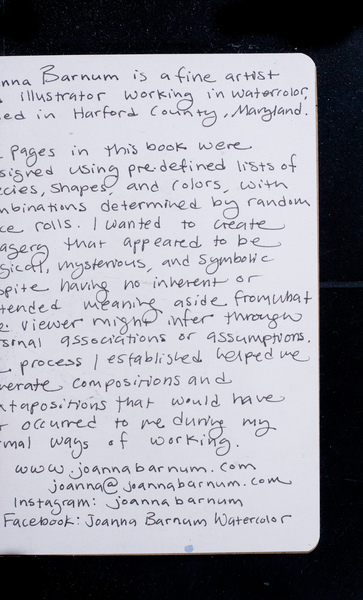 nna Barnum is a fine artist
illustrator working in watercolor,
ed in Harford County, Maryland.
pages in this book were
signed using pre-defined lists of
cies, shapes, and colors, with
mbinations determined by random
ce rolls. I wanted to create
agery that appeared to be
gical, mysterious, and symbolic
spite having no inherent or
tended meaning aside from what
e viewer might infer through
rsonal associations or assumptions.
process I established helped me
nerate compositions and
xtapositions that would have
r occurred to me during my
rmal ways of working.
www.joannabarnum.com
joanna@joannabarnum.com
Instagram: joannabarnum
Facebook: Joanna Barnum Watercolor